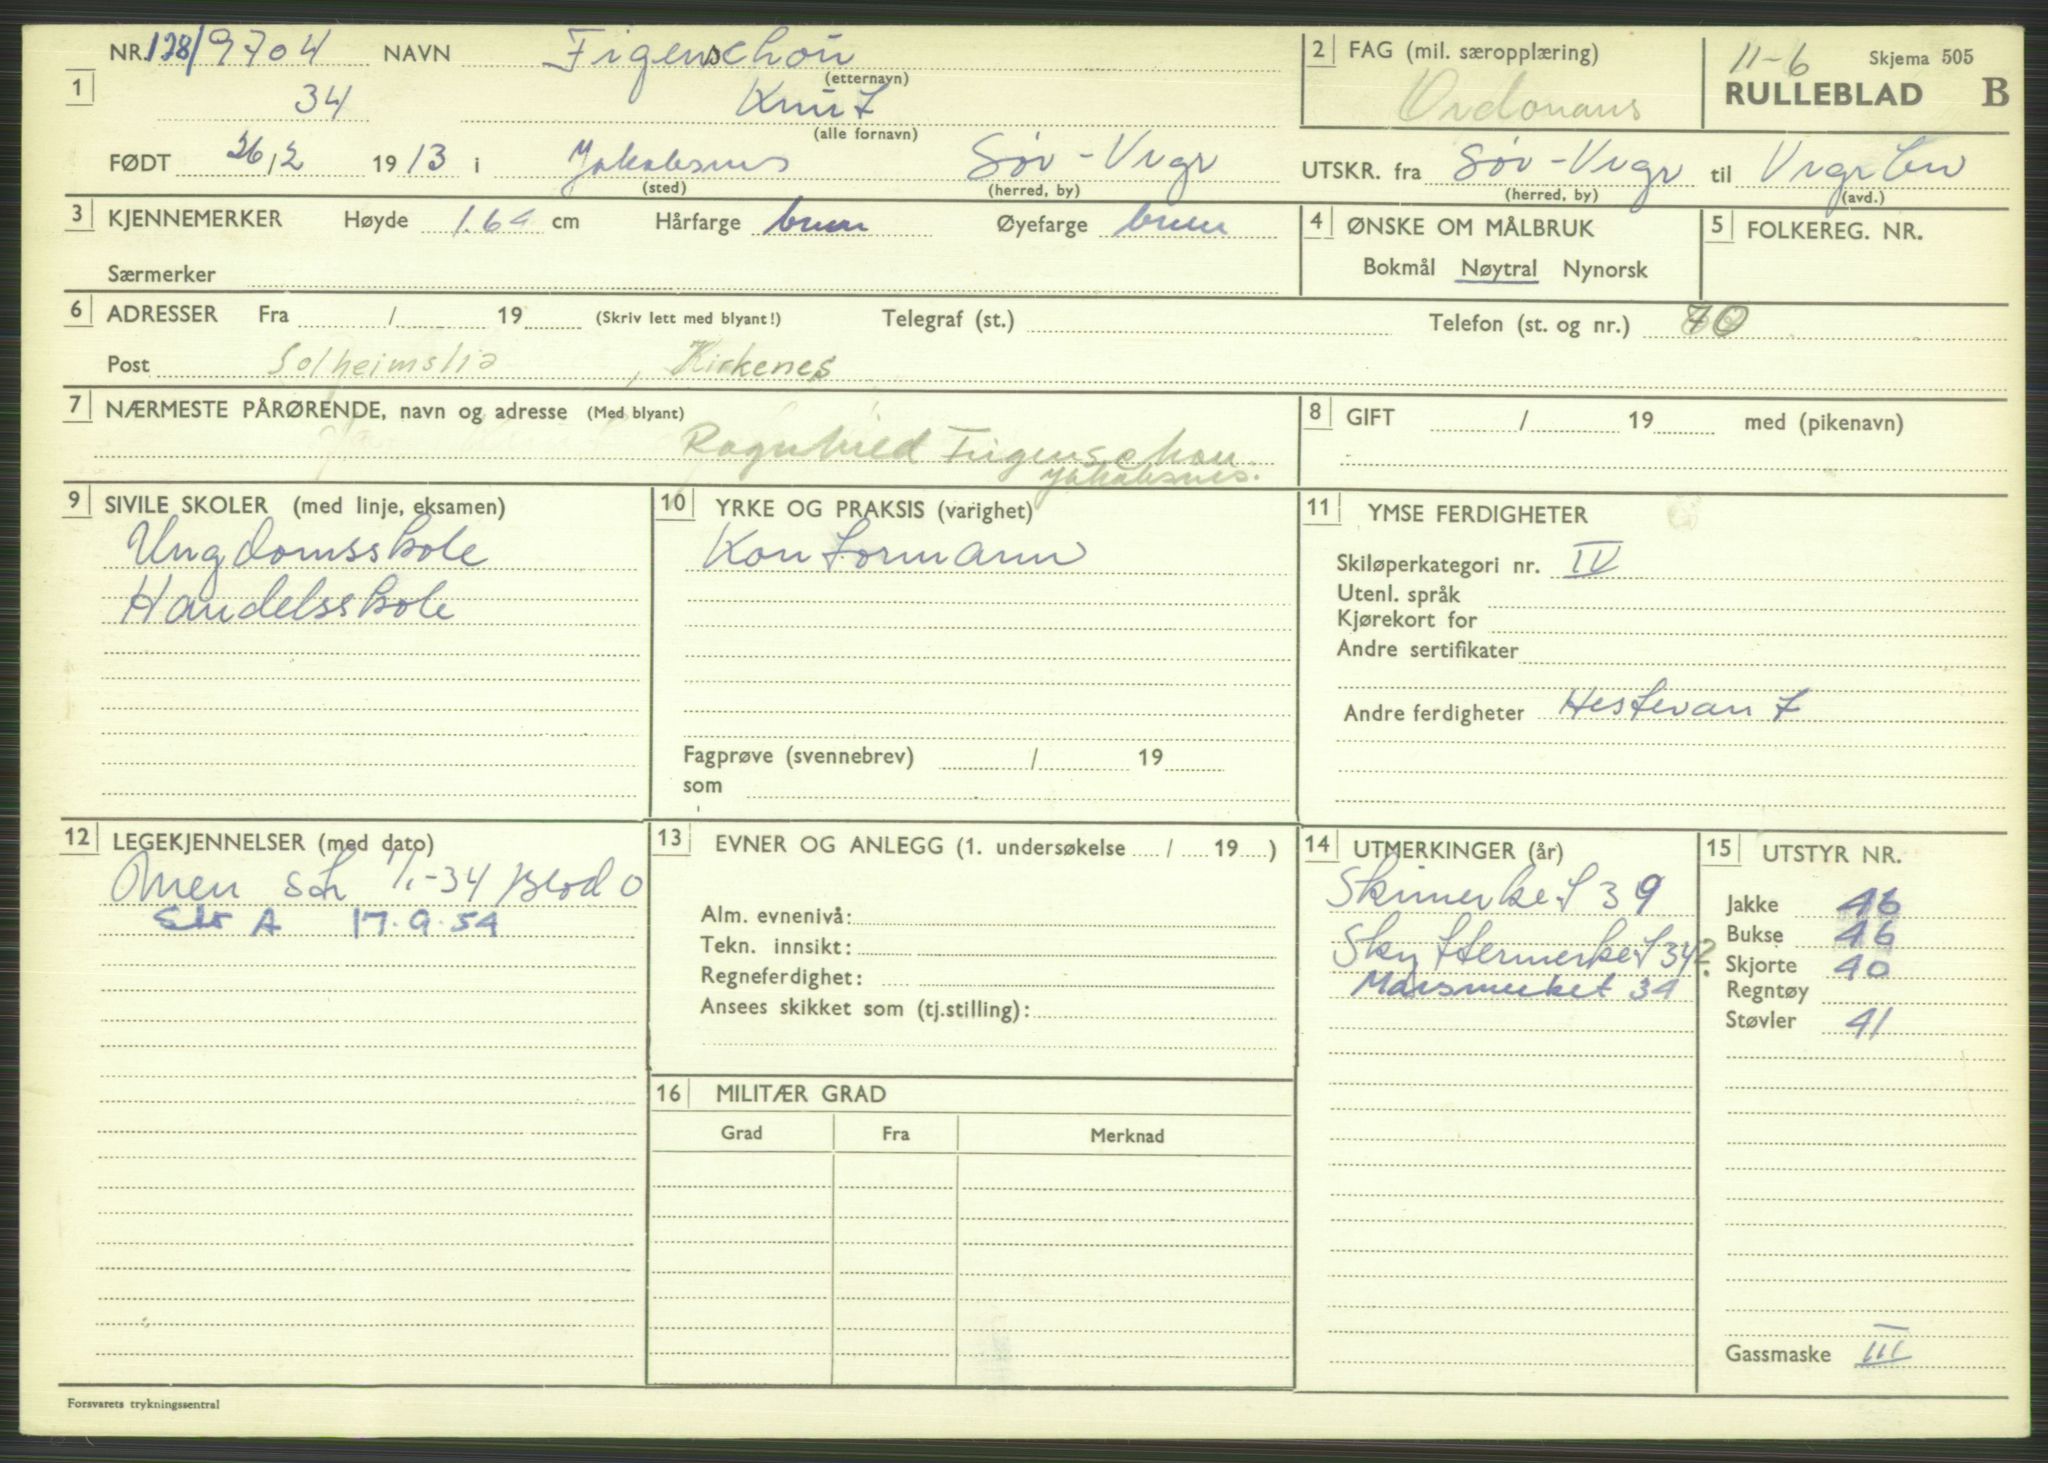 NR. 128/9704 NAVN Figenschou 2 FAG (mil. særopplæring) 11-6 Skjema 505
(etternavn)
1 34 Knut Ordonans RULLEBLAD B
(alle fornavn)
FØDT 26/2 1913 i Jakobsnes Sør-Vrgr UTSKR. fra Sør-Vrgr til Vrgr bn
(sted) (herred, by) (herred, by) (avd.)
3 KJENNEMERKER Høyde 1.64 cm Hårfarge brun Øyefarge brun 4 ØNSKE OM MÅLBRUK 5 FOLKEREG. NR.
Særmerker Bokmål Nøytral Nynorsk
6 ADRESSER Fra / 19 (Skriv lett med blyant!) Telegraf (st.) Telefon (st. og nr.) 70
Post Solheimslia, Kirkenes
7 NÆRMESTE PÅRØRENDE, navn og adresse (Med blyant) 8 GIFT / 19 med (pikenavn)
Ragnhild Figenschou
Jakobsnes.
9 SIVILE SKOLER (med linje, eksamen) 10 YRKE OG PRAKSIS (varighet) 11 YMSE FERDIGHETER
Ungdomsskole Kontormann Skiløperkategori nr. IV
Handelsskole Utenl. språk
Kjørekort for
Andre sertifikater
Andre ferdigheter Hestevant
Fagprøve (svennebrev) / 19
som
12 LEGEKJENNELSER (med dato) 13 EVNER OG ANLEGG (1. undersøkelse / 19 ) 14 UTMERKINGER (år) 15 UTSTYR NR.
1/1-34 Blod O Skimerket 39 Jakke 46
Str A 17.9.54 Alm. evnenivå: Skyttermerket 34? Bukse 46
Tekn. innsikt: Marsmerket 34 Skjorte 40
Regneferdighet: Regntøy
Ansees skikket som (tj.stilling): Støvler 41
16 MILITÆR GRAD
Grad Fra Merknad
Gassmaske III
Forsvarets trykningssentral